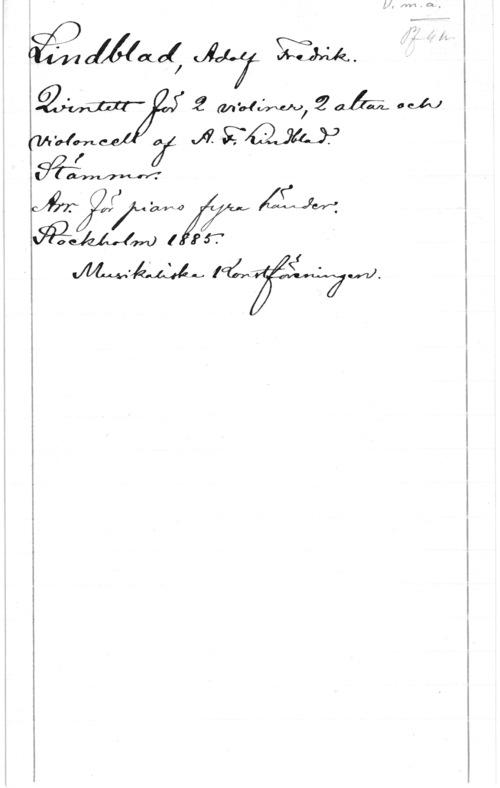 V. m. a.
Pf. 4 h.
Lindblad, Adolf Fredrik.
Qvintett för 2 violiner, 2 altar och
violoncell af A. F. Lindblad.
Stämmor.
Arr. för piano fyra händer.
Stockholm 1885.
Musikaliska Konstföreningen.